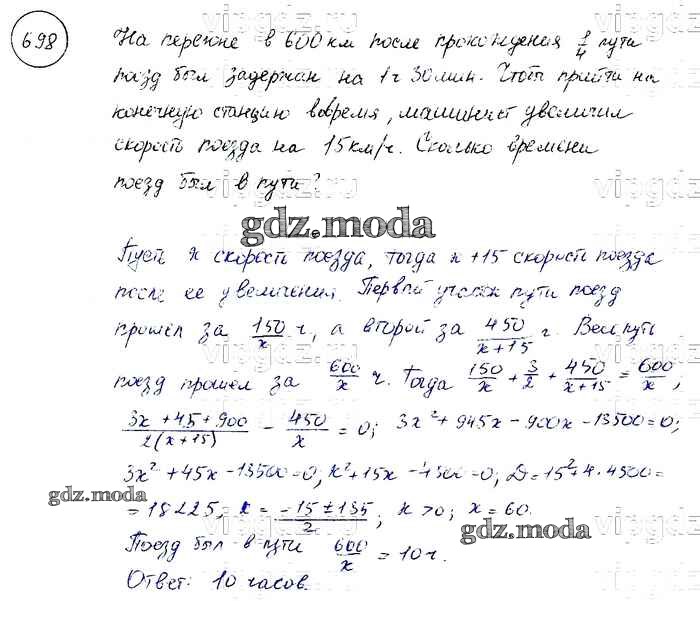 698
На перегоне в 600 км после прохождения 1/4 пути
поезд был задержан на 1 ч 30 мин. Чтобы прийти на
конечную станцию вовремя, машинист увеличил
скорость поезда на 15 км/ч. Сколько времени
поезд был в пути?
gdz.moda
Пусть x скорость поезда, тогда x+15 скорость поезда
после ее увеличения. Первый участок пути поезд
прошел за 150/x ч, а второй за 450/(x+15) ч. Весь путь
поезд прошел за 600/x ч. Тогда 150/x + 3/2 + 450/(x+15) = 600/x;
(3x+45+900)/(2(x+15)) - 450/x = 0; 3x²+945x-900x-13500=0;
3x²+45x-13500=0; x²+15x-4500=0; D=15²+4·4500=
gdz.moda
=18225; x = (-15±135)/2; x>0; x=60.
gdz.moda
Поезд был в пути 600/x = 10 ч.
Ответ: 10 часов.
vipgdz.ru